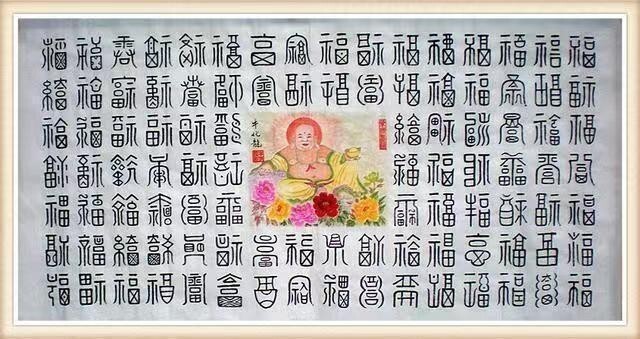 福福福福福福福福福福福福福福福福
福福福福福福福福福福福福福福福福
福福福福福福福福福福福福
福福福福福福福福福福福福
福福福福福福福福福福福福
福福福福福福福福福福福福福福福福
福福福福福福福福福福福福福福福福